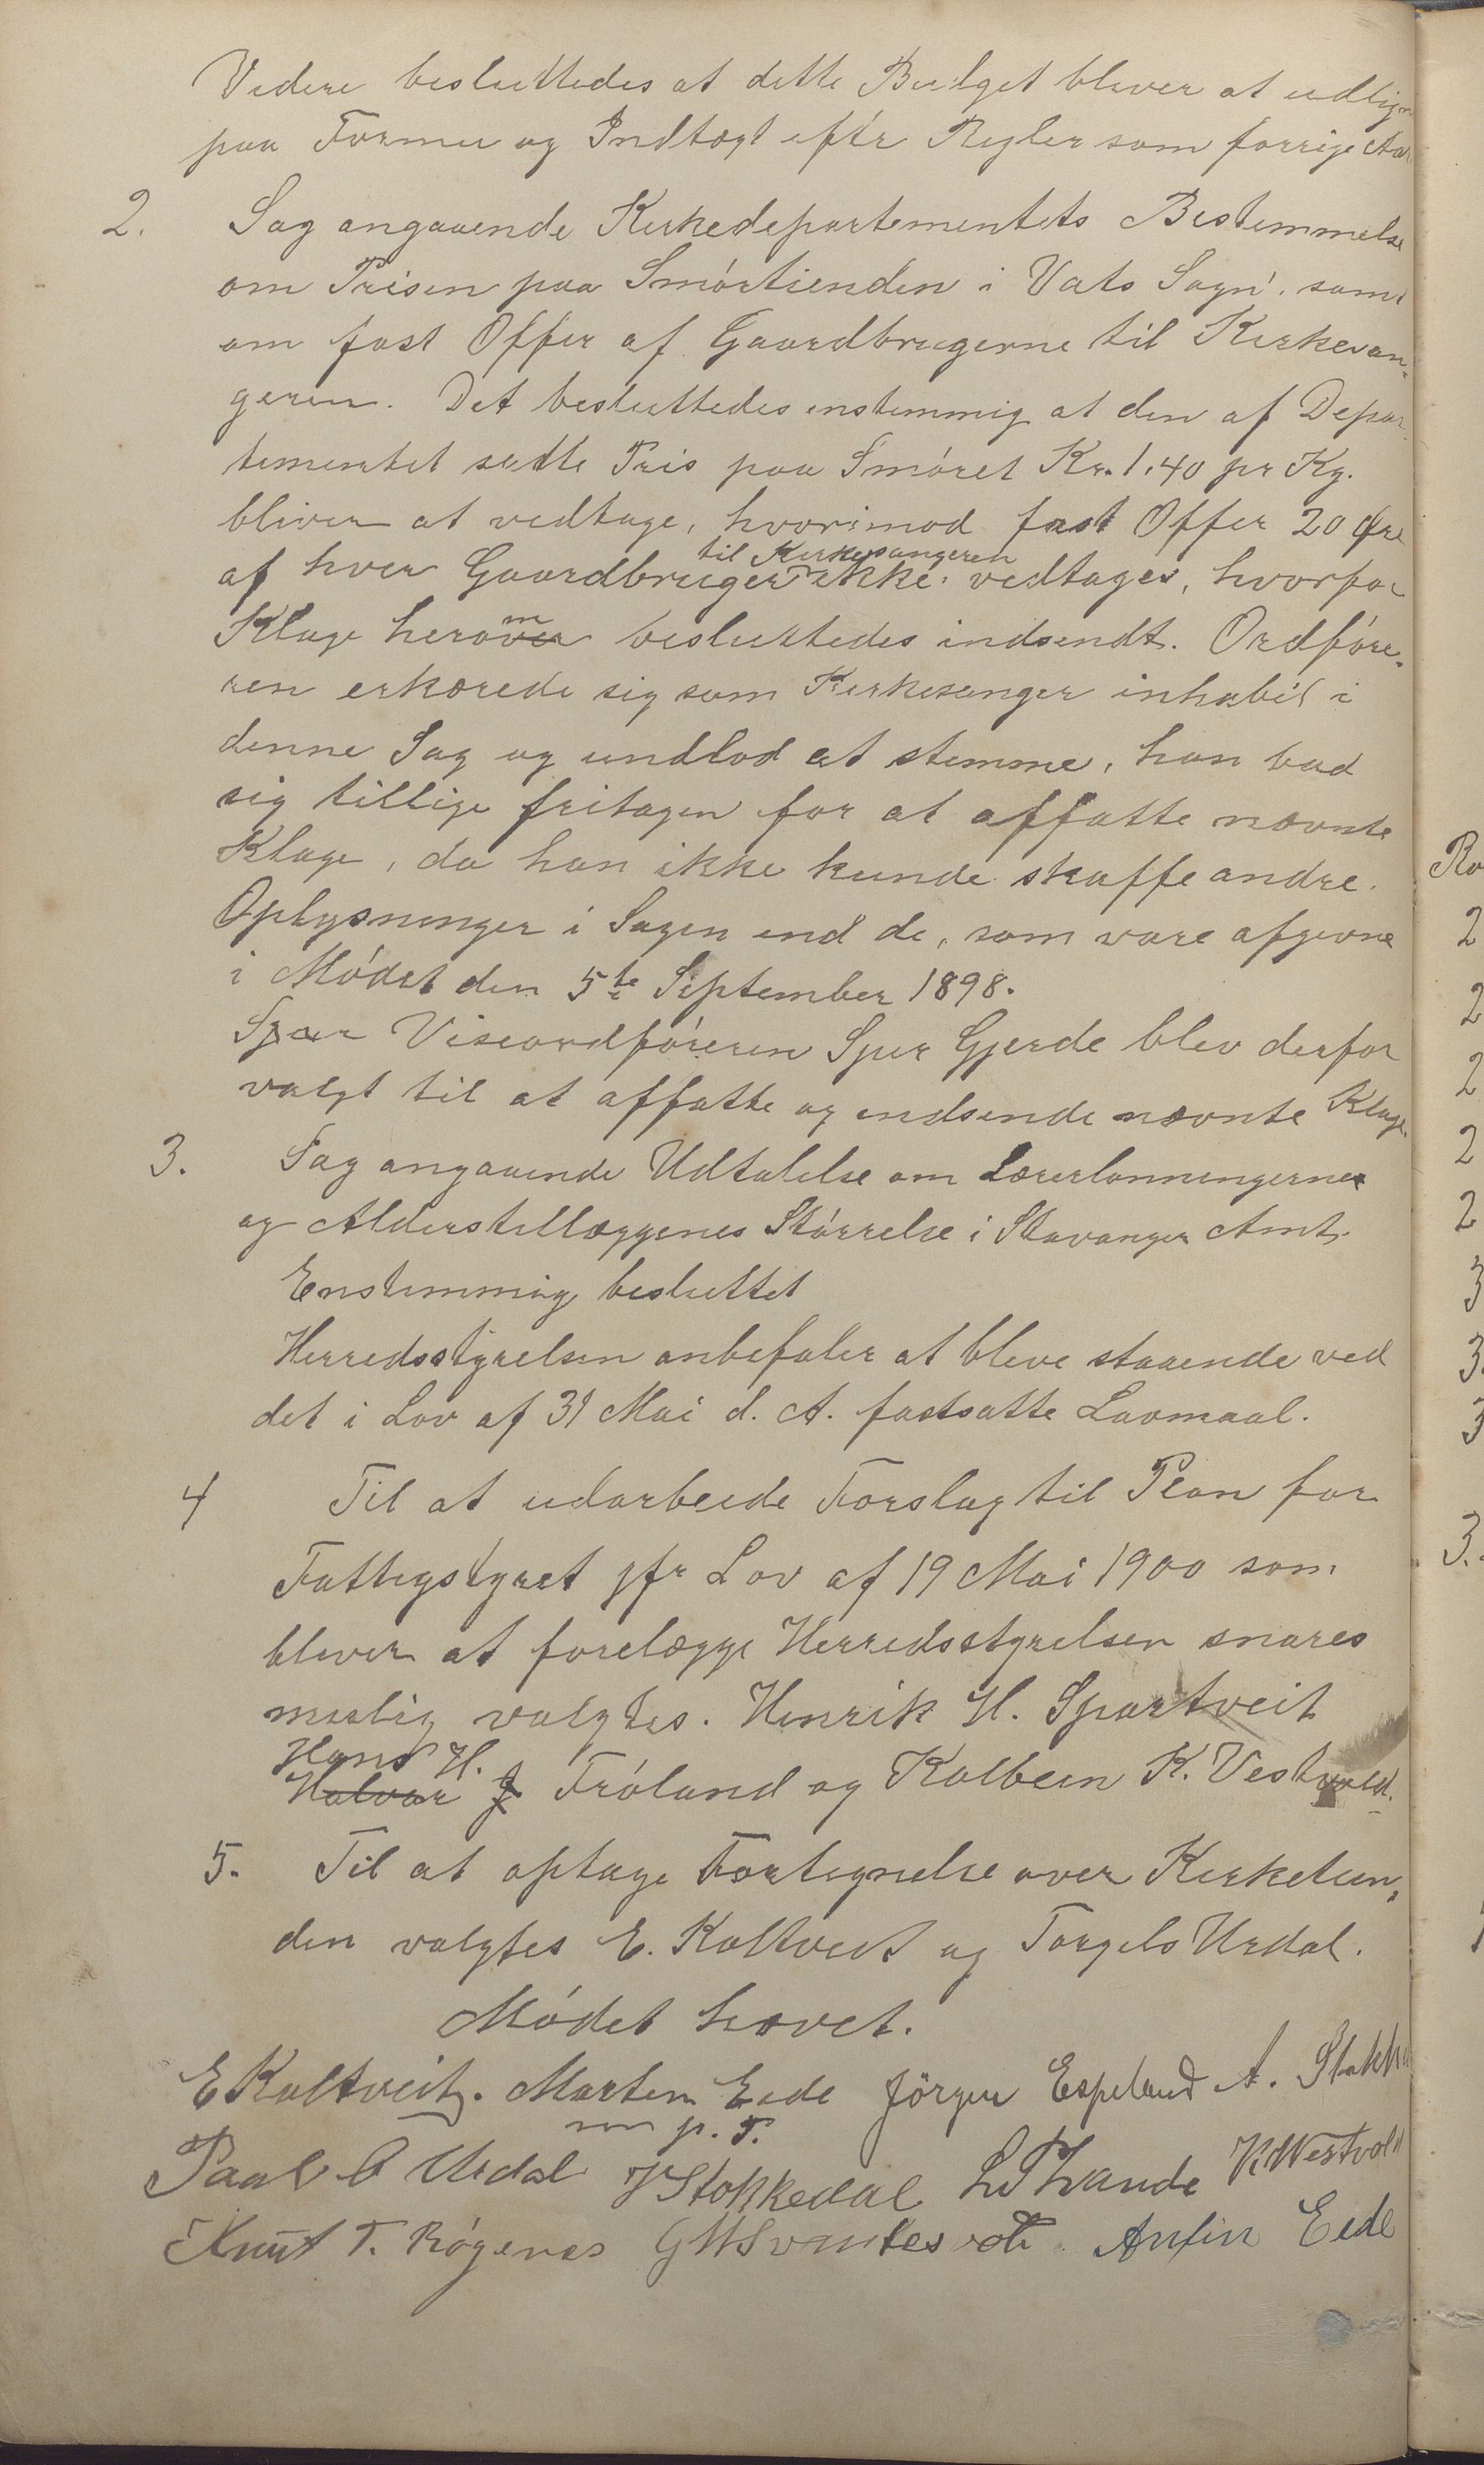 Videre besluttedes at dette Budget bliver at udlign
paa Formue og Indtægt efter Regler som forrige Aar
2. Sag angaaende Kirkedepartementets Bestemmelse
om Prisen paa Smörtienden i Vats Sogn, samt
om fast Offer af Gaardbrugerne til Kirkesan-
geren. Det besluttedes enstemmig at den af Depar-
tementet satte Pris paa Smöret Kr. 1,40 pr Kg.
bliver at vedtage, hvorimod fast Offer 20 Øre
til Kirkesangeren
af hver Gaardbruger ikke vedtages, hvorfor
Klage herom besluttedes indsendt. Ordföre-
ren erkærede sig som Kirkesanger inhabil i
denne Sag og undlod at stemme, han bad
sig tillige fritagen for at affatte nævnte
Klage, da han ikke kunde skaffe andre
Oplysninger i Sagen end de, som vare afgivne
i Mödet den 5te September 1898.
Viseordföreren Sjur Gjerde blev derfor
valgt til at affatte og indsende nævnte Klage.
3. Sag angaaende Udtalelse om Lærerlønningernes
og Alderstillæggenes Störrelse i Stavanger Amt.
Enstemmig besluttet
Herredsstyrelsen anbefaler at blive staaende ved
det i Lov af 31 Mai d. A. fastsatte Lavmaal.
4 Til at udarbeide Forslag til Plan for
Fattigstyret jfr Lov af 19 Mai 1900 som
bliver at forelægge Herredsstyrelsen snares
mulig valgtes. Henrik H. Spartveit
Hans H.
Halvor J Fröland og Kolbein K. Vestvold.
5. Til at optage Fortegnelse over Kirketien-
den valgtes E. Kaltveit og Torgils Urdal.
Mödet hævet.
E Kaltveit. Marten Eide Jörgen Espeland A. Stakk
m p. F.
Paal O Urdal Stokkedal Lande K Westvold
Knut T. Rögenes Svantesvold Anfin Eide
Ro
2
2
2
2
2
3
3.
3
3.